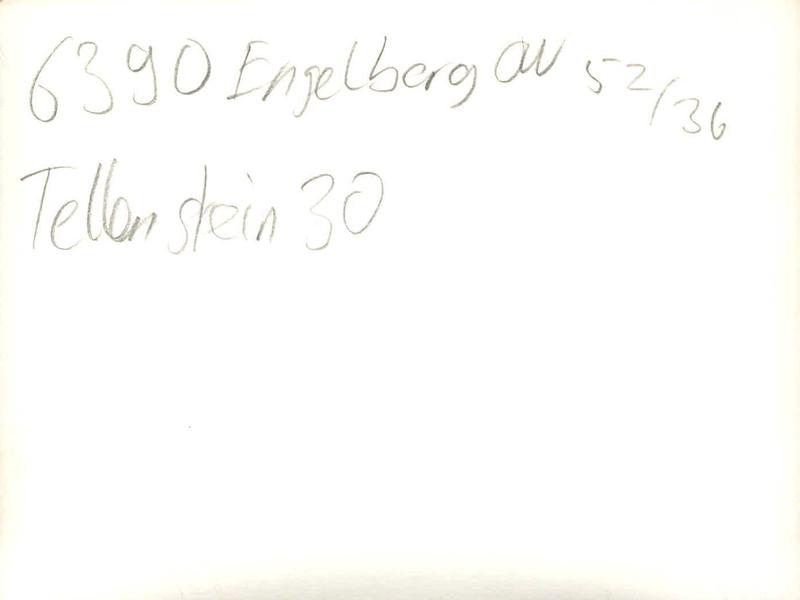 6390 Engelberg OW 52/36
Tellenstein 30